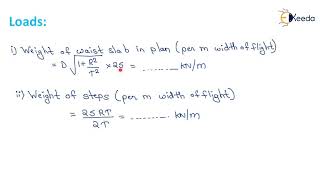 Loads:
Ekeeda
i) Weight of waist slab in plan (per m width of flight)
= D √(1 + R²/T²) × 25 = ........... kN/m
ii) Weight of steps (per m width of flight)
= 25RT/2T = ........... kN/m